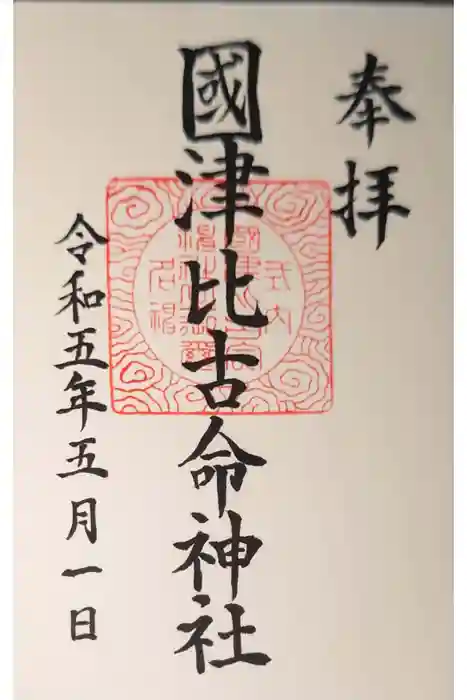 奉拝
國津比古命神社
令和五年五月一日